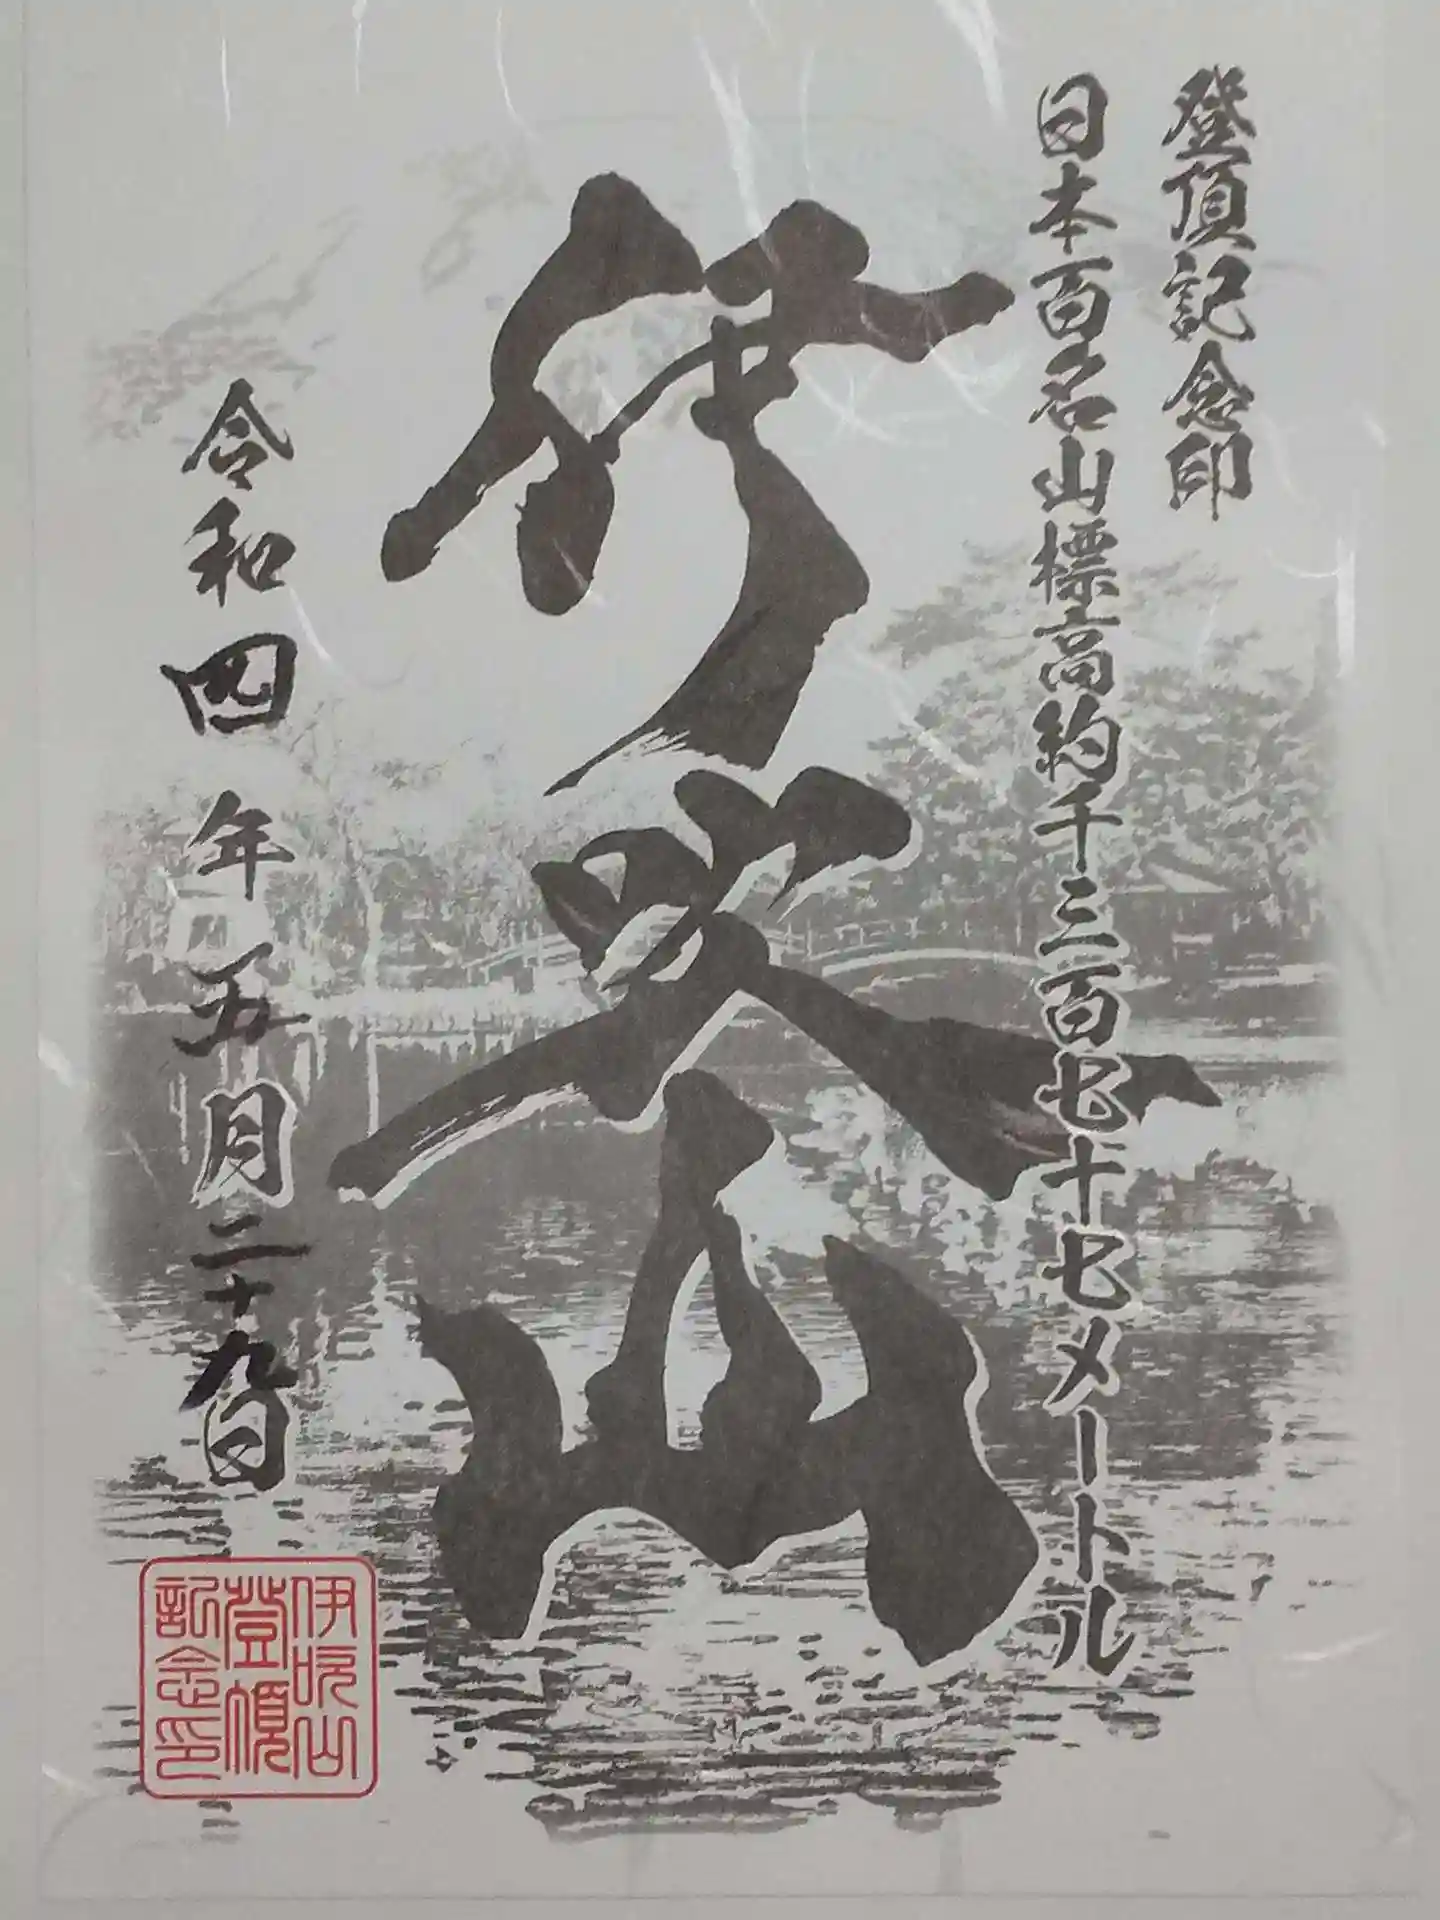 登頂記念印
日本百名山標高約千三百七十七メートル
伊吹山
令和四年五月二十九日
伊吹山
登頂
記念印